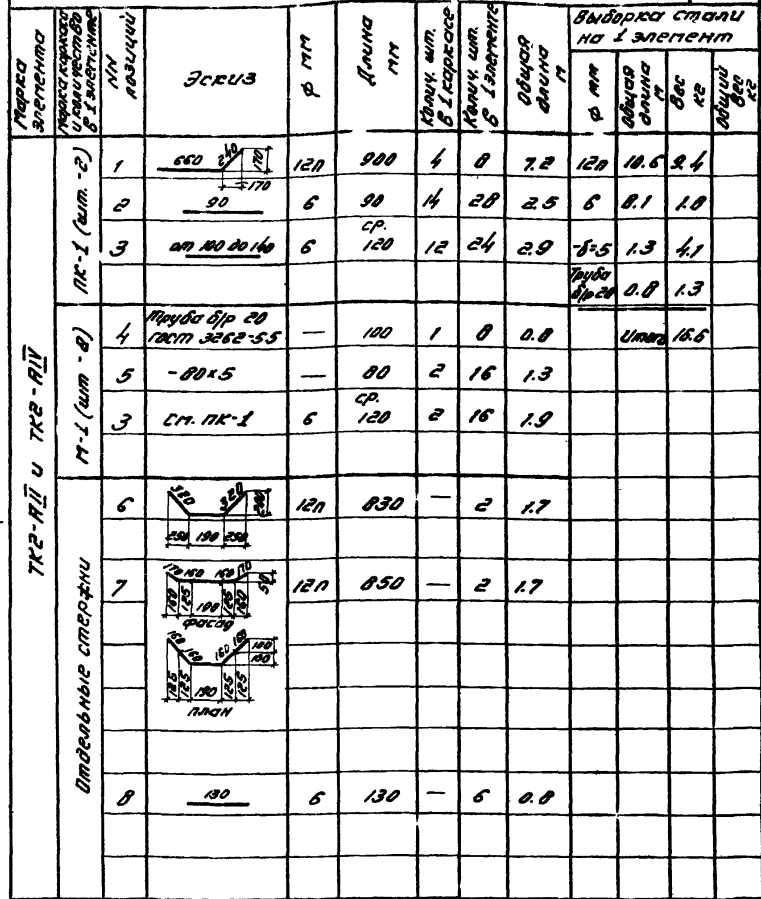 Марка элемента
Марка каркаса и количество в 1 элементе
NN позиций
Эскиз
φ мм
Длина мм
Колич. шт. в 1 каркасе
Колич. шт. в 1 элементе
Общая длина м
Выборка стали на 1 элемент
φ мм
Общая длина м
Вес кг
Общий вес кг
ТК2-АII и ТК2-АIV
ПК-1 (шт. -2)
1 660 240 170 170 12п 900 4 8 7.2 12п 10.6 9.4
2 90 6 90 14 28 2.5 6 8.1 1.8
3 от 100 до 140 6 ср. 120 12 24 2.9 -δ=5 1.3 4.1
Труба б/р 20 0.8 1.3
М-1 (шт - 8)
4 Труба б/р 20 гост 3262-55 — 100 1 8 0.8 Итого 16.6
5 -80×5 — 80 2 16 1.3
3 см. ПК-1 6 ср. 120 2 16 1.9
Отдельные стержни
6 320 320 200 12п 830 — 2 1.7
250 190 250
7 170 160 160 170 50 12п 850 — 2 1.7
160 125 190 125 160
фасад
160 160 160 160 100 100
125 125 190 125 125
план
8 130 6 130 — 6 0.8